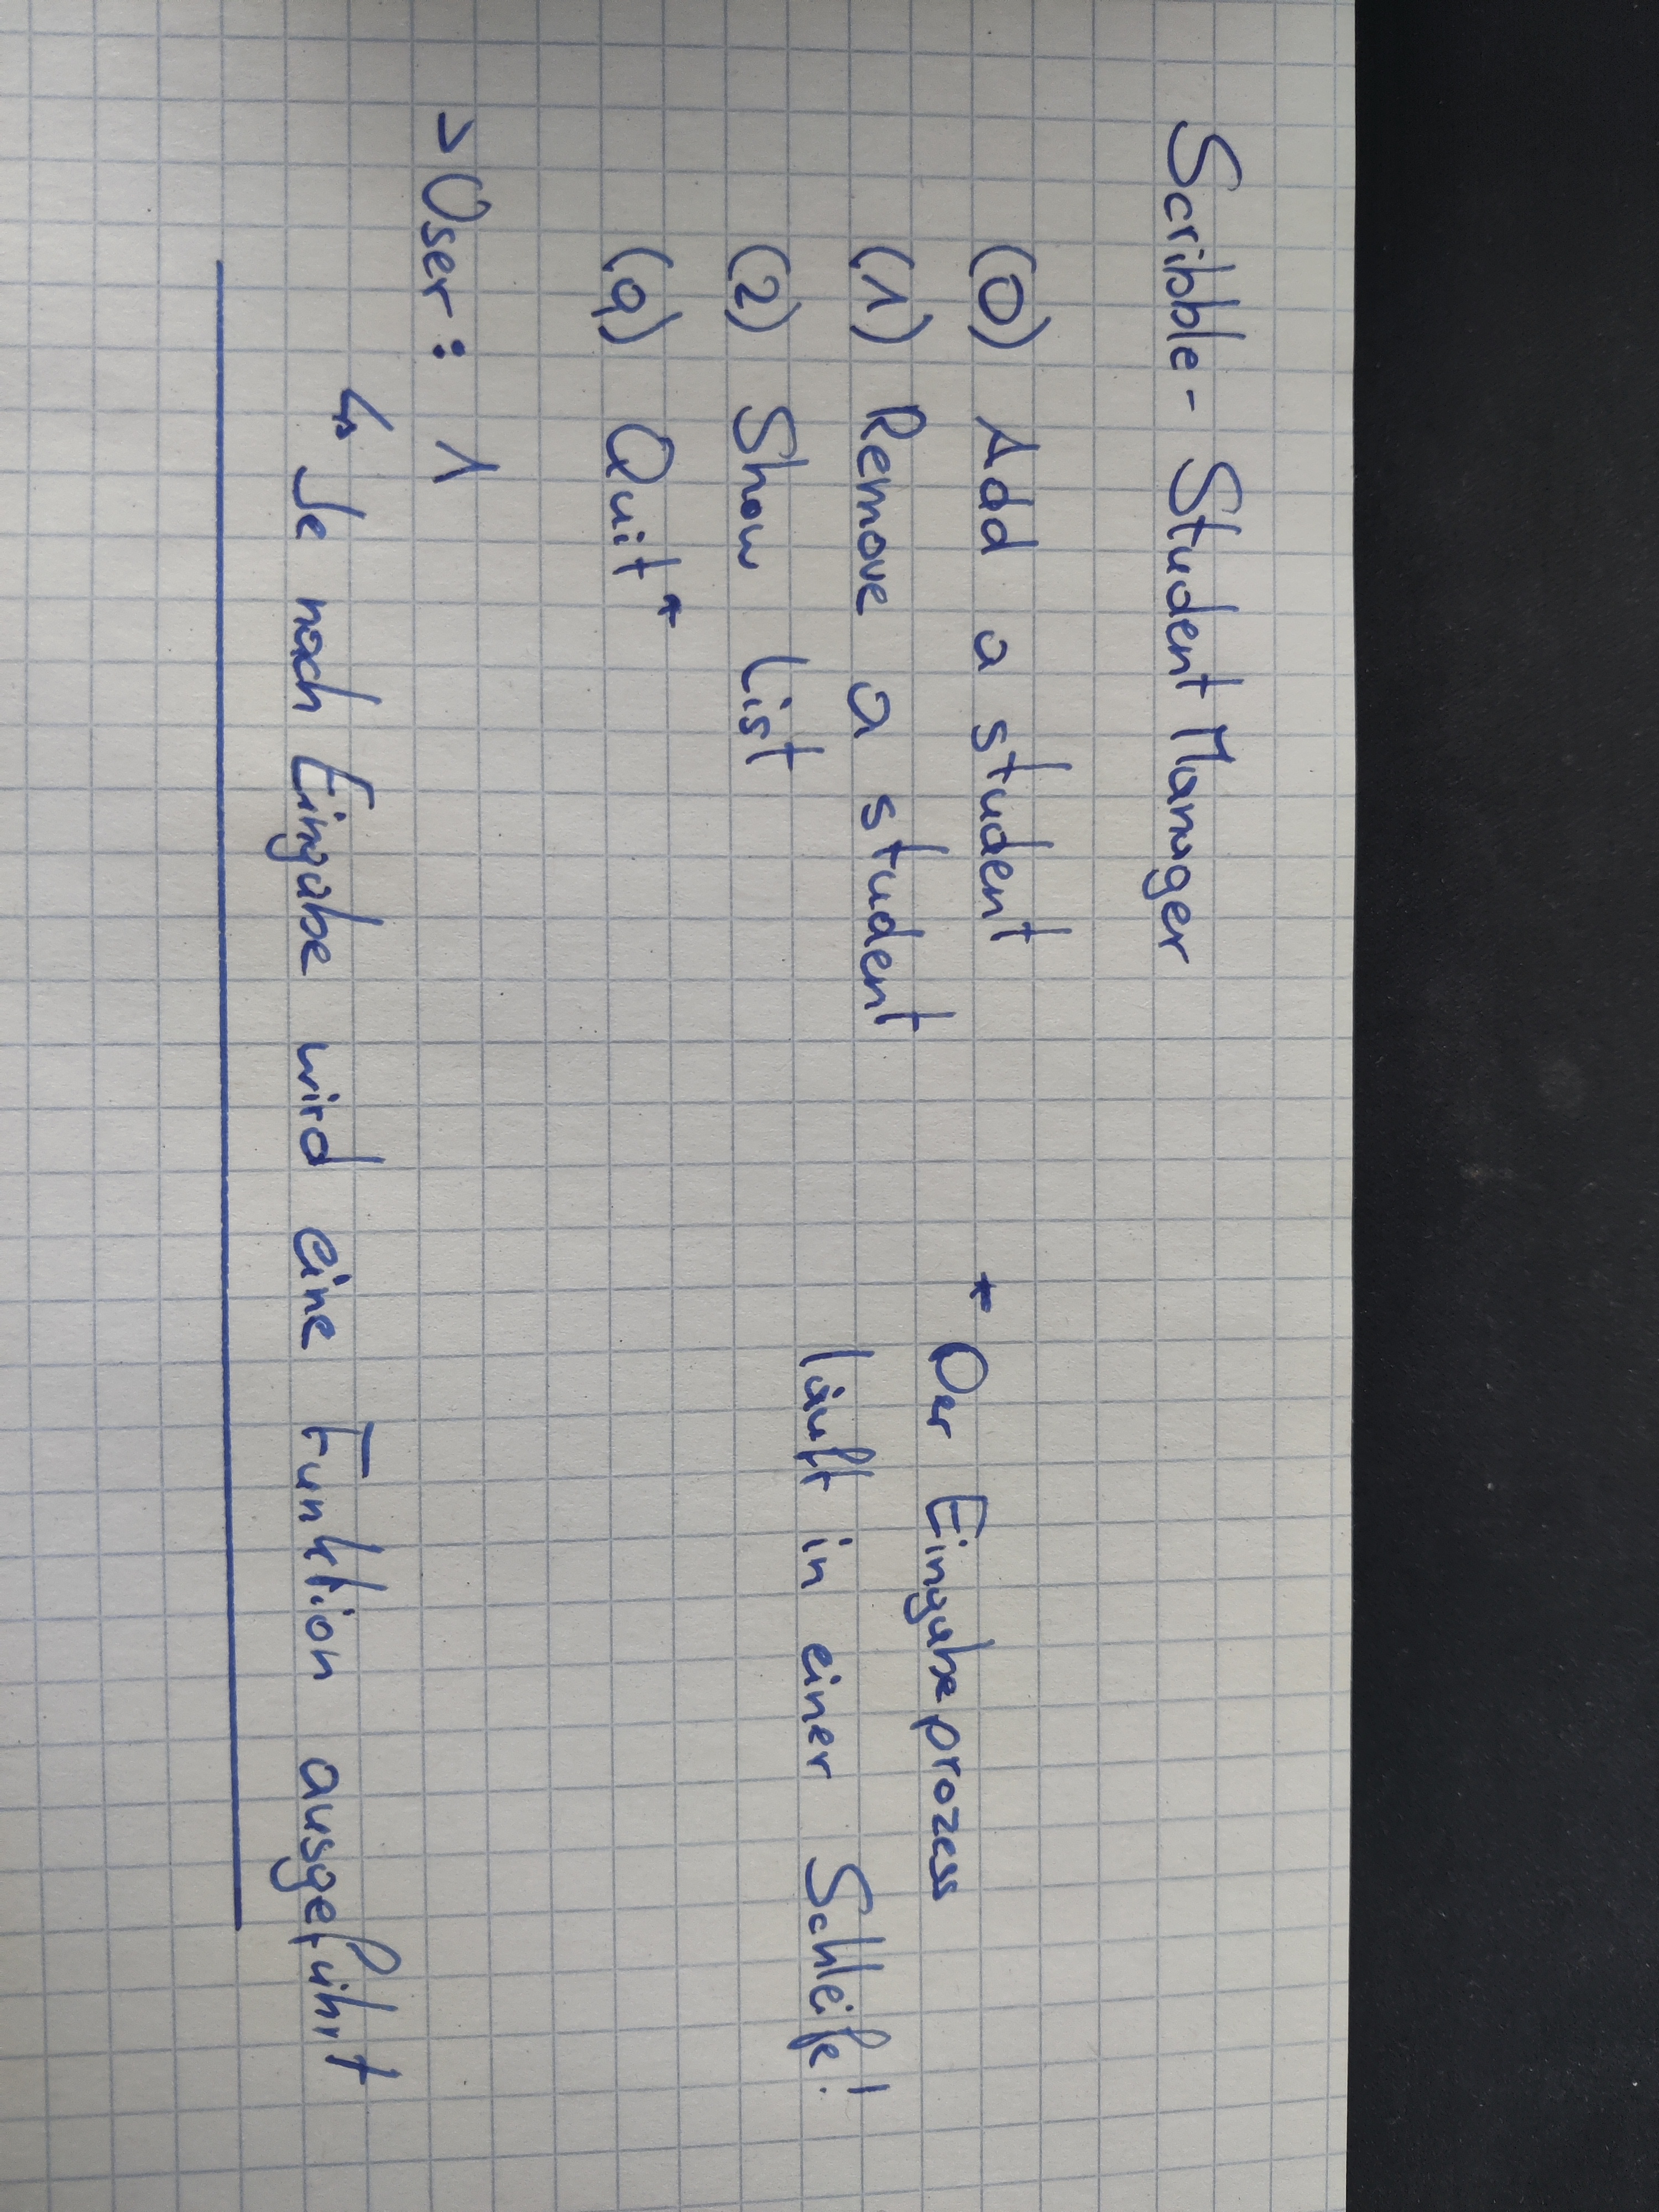 Scribble - Student Manager
(0) Add a student
(1) Remove a student
(2) Show List
(q) Quit*
* Der Eingabeprozess
läuft in einer Schleife!
> User: 1
↳ Je nach Eingabe wird eine Funktion ausgeführt